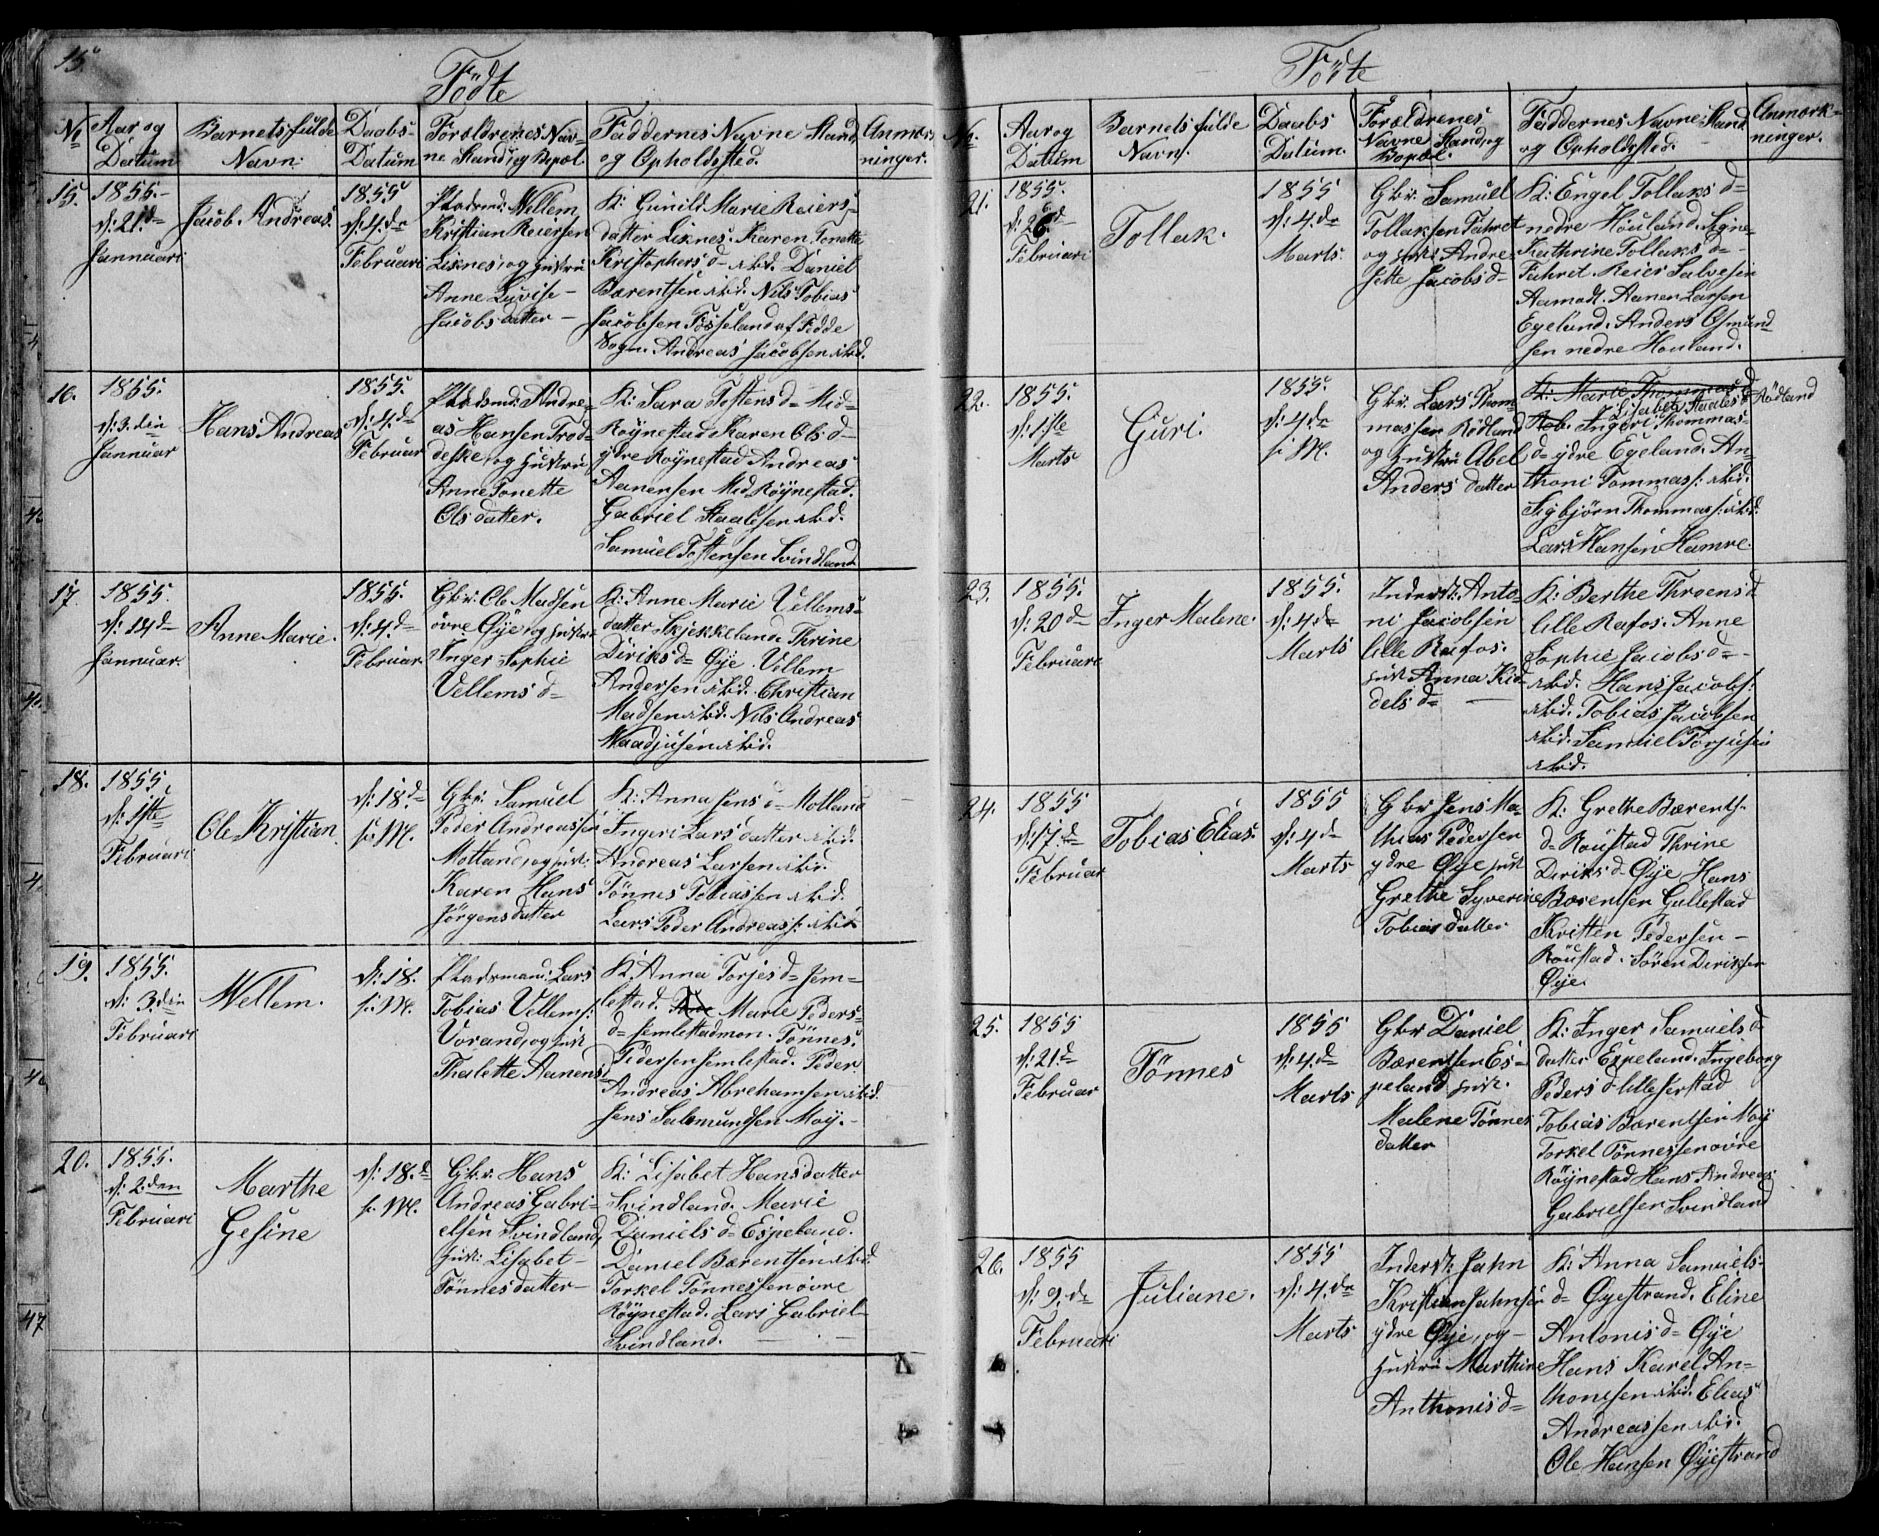 15.
Födte
No
Aar og
Datum
Barnets fulde
Navn.
Daabs-
Datum
Forældrenes Nav-
ne Stand, og Bopæl.
Faddernes Navne Stand
og Opholdsted.
Anmærk-
ninger.
15.
1855.
d: 21d
Jannuari
Jacob Andreas.
1855
d: 4de
Februari
Pladsmd: Wellem
Kristian Reiersen
Lisnes, og Hustru
Anne Luvise
Jacobs datter
K: Gunild Marie Reiers-
datter Lisnes. Karen Tonette
Kristophers d= ibid. Daniel
Bærentsen ibid. Nils Tobias
Jacobsen Fosseland af Fedde
Sogn. Andreas Jacobsen ibid.
16.
1855.
d: 3.den
Jannuar
Hans Andreas
1855.
d: 4.d=
Februar
Pladsmd: Andre-
as Hansen Trod-
deske, og Hustru
Anne Tonette
Ols datter.
K: Sara Tostens d= Mid-
Röynestad Karen Ols d=
ydre Röynestad Andreas
Aanensen Mid Röynestad.
Gabriel Staalesen ibid.
Samuel Tostensen Svindland
17.
1855.
d: 14d=
Jannuar.
Anne Marie.
1855.
d: 4.d=
Februar.
Gbr: Ole Madsen
övre Øye, og Hustru
Inger Sophie
Vellems d=
K: Anne Marie Vellems-
datter Skjekkeland. Thrine
Diriks d= Øye. Vellem
Andersen ibid. Christian
Madsen ibid. Nils Andreas
Maadjusen ibid.
18.
1855
d: 1ste
Februari
Ole Kristian.
d: 18.d=
s: M.
Gbr: Samuel
Peder Andreassen
Motland, og Hust:
Karen Hans
Jörgens datter
K: Anna Jens d= Motland
Ingeri Lars datter ibid.
Andreas Larsen ibid.
Tönnes Tobiassen ibid.
Lars Peder Andreass: ibid
19.
1855.
d: 3den
Februari
Wellem.
d: 18.
s: M.
Pladsmand: Lars
Tobias Vellems:
Vorand, og Hust
Thalette Aanens d
K: Anna Torjes d= Jem-
lestad. Marie Peders-
d= Jemlestadmon. Tönnes
Pedersen Jemlestad. Peder
Andreas Abrehamsen ibid.
Jens Salomundsen Moy.
20.
1855.
d: 2den
Februari
Marthe
Gesine
d: 18.d=
s: M.
Gbr: Hans
Andreas Gabri-
elsen Svindland,
Hust: Lisabet
Tönnes datter
K: Lisabet Hansdatter
Svindland. Marie
Daniels d= Espeland.
Daniel Bærentsen ibid.
Torkel Tönnessen övre
Röynestad. Lars Gabriel-
Svindland.
Födte
No.
Aar og
Datum
Barnets fulde
Navn.
Daabs
Datum.
Forældrenes
Navne Stand, og
Bopæl.
Faddernes Navne Stand
og Opholdsted.
Anmærk-
ninger.
21.
1855.
d: 26d
Februari
Tollak.
1855
d: 4.de
Marts.
Gbr: Samuel
Tollaksen Fuhret
og Hust: Andre
Jette Jacobs d=
K: Engel Tollaks d=
nedre Houland. Signe
Kathrine Tollaks d=
Fuhret. Reier Salvesen
Aamodt. Aanen Larsen
Egeland. Anders Osmund-
sen nedre Houland.
22.
1855.
d: 1ste
Marts
Guri.
1855.
d: 4.de
s: M.
Gbr. Lars Thom-
massen Rödland
og Hustru Abel
Anders datter
K: Marie Thommas d
Lisabet Staales d Rödland
Rob. Ingeri Thommas-
d= ydre Egeland. An-
thoni Tommass: ibid.
Sigbjörn Thommass: ibid.
Lars Hansen Hamre.
23.
1855.
d: 20d=
Februari
Inger Malene.
1855.
d: 4de
Marts
Inderst: Anto-
ni Jacobsen
Lille Rafos.
Hust Anna Kid-
dels d=
K: Berthe Throens d
Lille Rafos. Anne
Sophie Jacobs d=
ibid. Hans Jacobs:
ibid. Tobias Jacobsen
ibid. Samuel Torjusen
ibid.
24.
1855
d: 17.d=
Februar
Tobias Elias.
1855
d: 4d=
Marts
Gbr Jens Ma-
thias Pedersen
ydre Øye Hust
Grethe Syverine
Tobias datter
K: Grethe Bærents-
d= Röustad Thrine
Diriks d= Øye Hans
Bærentsen Gullestad
Kritten Pedersen
Röustad. Sören Diriksen
Øye.
25.
1855
d: 21.d=
Februar
Tönnes
1855
d: 4.d=
Marts
Gbr Daniel
Bærentsen Es-
peland Hust.
Malene Tönnes
datter
K: Inger Samuels d
datter Espeland. Ingeborg
Peders d Ulleserstad
Tobias Bærentsen Moy
Torkel Tönnessen övre
Röynestad Hans Andreas
Gabrielsen Svindland
26.
1855
d: 9.d=
Februari
Juliane.
1855
d: 4.de
Marts
Inderst. Jahn
Kristian Jahnsen
ydre Øye, og
Hustru Marthine
Anthonis d=
K: Anna Samuels-
d= Øyestrand. Eline
Antonis d= Øye
Hans Karel An-
thonisen ibid. Elias
Andreassen ibid.
Ole Hansen Øyestrand